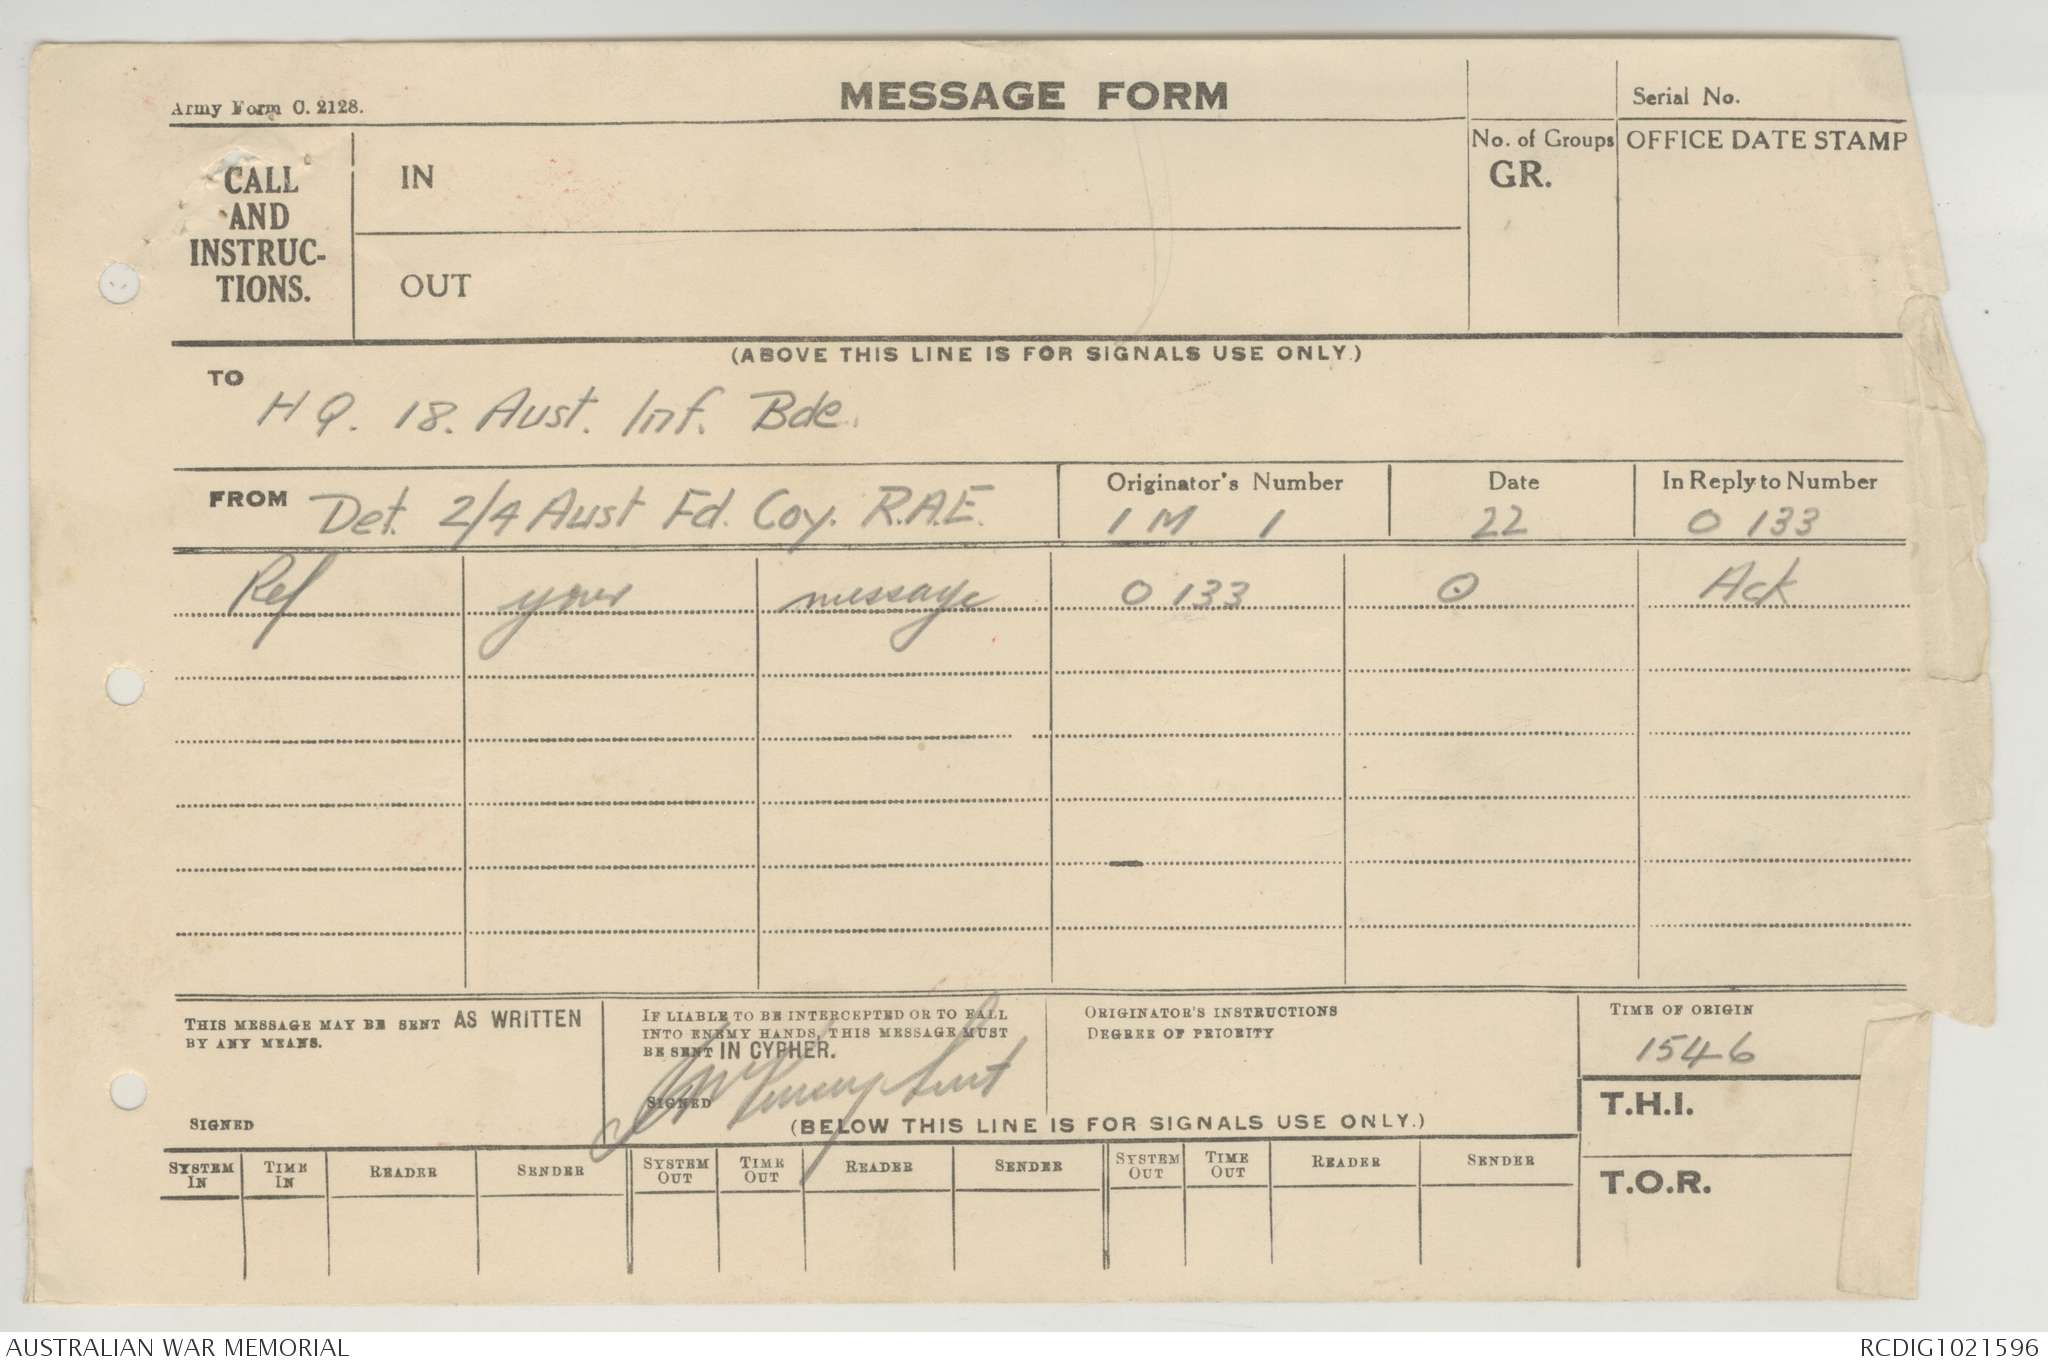 Army Form C. 2128.
MESSAGE FORM
Serial No.
CALL
AND
INSTRUC-
TIONS.
IN
OUT
No. of Groups
GR.
OFFICE DATE STAMP
(ABOVE THIS LINE IS FOR SIGNALS USE ONLY.)
TO
HQ. 18. Aust. Inf. Bde.
FROM Det. 2/4 Aust Fd. Coy. R.A.E.
Originator's Number
1M 1
Date
22
In Reply to Number
O 133
Ref your message O 133 ⊙ Ack
THIS MESSAGE MAY BE SENT AS WRITTEN
BY ANY MEANS.
SIGNED
IF LIABLE TO BE INTERCEPTED OR TO FALL
INTO ENEMY HANDS, THIS MESSAGE MUST
BE SENT IN CYPHER.
SIGNED
ORIGINATOR'S INSTRUCTIONS
DEGREE OF PRIORITY
TIME OF ORIGIN
1546
T.H.I.
T.O.R.
(BELOW THIS LINE IS FOR SIGNALS USE ONLY.)
SYSTEM IN
TIME IN
READER
SENDER
SYSTEM OUT
TIME OUT
READER
SENDER
SYSTEM OUT
TIME OUT
READER
SENDER
AUSTRALIAN WAR MEMORIAL
RCDIG1021596